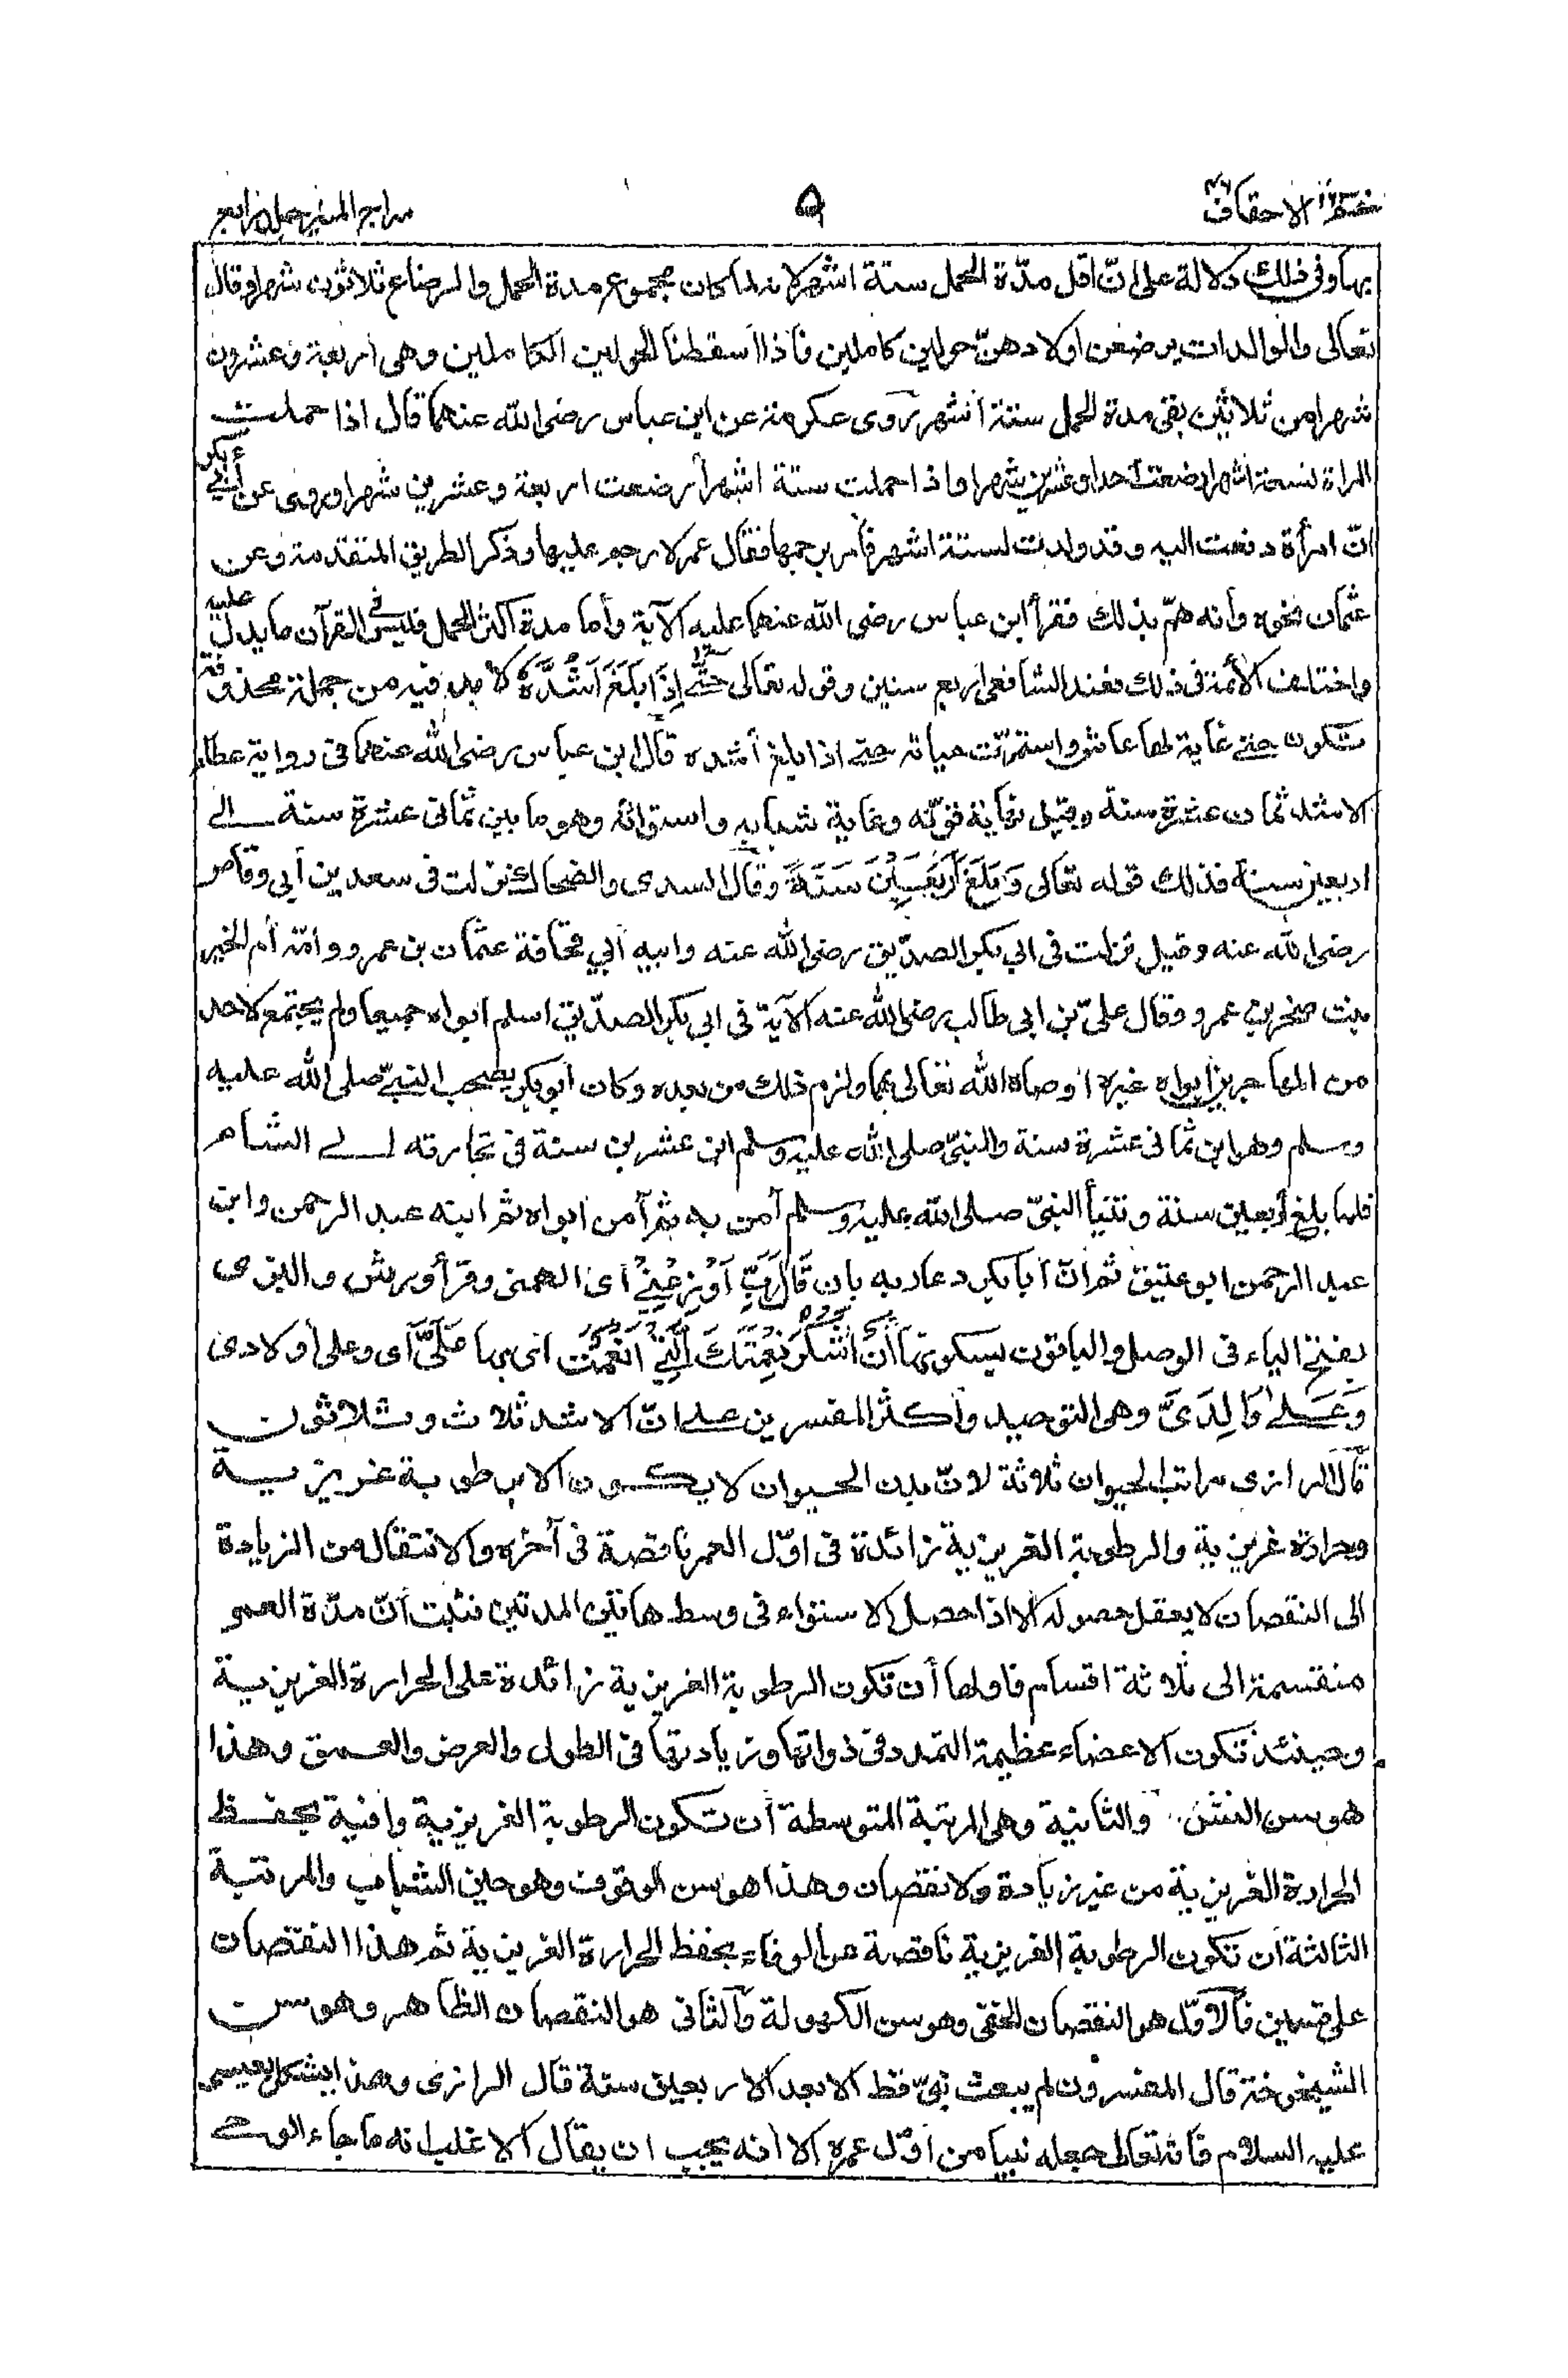 الاحقاف ٤٦
٥
سراج المنير جلد رابع
بها وفى ذلك دلالة على انّ اقل مدّة الحمل ستة اشهر لانه لما كان مجموع مدة الحمل والرضاع ثلاثون شهرا وقال
تعالى والوالدات يرضعن اولادهنّ حولين كاملين فاذا أسقطنا الحولين الكاملين وهى أربعة وعشرون
شهرا من ثلاثين بقى مدة الحمل ستة أشهر روى عكرمة عن ابن عباس رضى الله عنهما قال اذا حملت
المرأة تسعة اشهر ارضعت احدا وعشرين شهرا واذا حملت ستة اشهر أرضعت اربعة وعشرين شهرا وروى عن أبى بكر
انّ امرأة دفعت اليه وقد ولدت لستة اشهر فأمر برجمها فقال عمر لا رجم عليها وذكر الطريق المتقدمة وعن
عثمان نحوه وأنه همّ بذلك فقرأ ابن عباس رضى الله عنهما عليه الآية وأما مدة اكثر الحمل فليس فى القرآن ما يدل عليه
واختلف الأئمة فى ذلك فعند الشافعى اربع سنين وقوله تعالى حَتّٰى إِذَا بَلَغَ أَشُدَّهٗ لا بد فيه من جملة محذوفة
تكون حتى غاية لها عاش واستمرّت حياته حتى اذا بلغ أشده قال ابن عباس رضى الله عنهما فى رواية عطاء
الاشد ثمان عشرة سنة وقيل نهاية قوّته وغاية شبابه واستوائه وهو ما بين ثمانى عشرة سنة الى
اربعين سنة فذلك قوله تعالى وَبَلَغَ أَرْبَعِينَ سَنَةً وقال السدى والضحاك نزلت فى سعد بن أبي وقاص
رضى الله عنه وقيل نزلت فى ابي بكر الصدّيق رضى الله عنه وابيه أبي قحافة عثمان بن عمرو وامّه أم الخير
بنت صخر بن عمرو وقال علىّ بن ابي طالب رضى الله عنه الآية فى ابى بكر الصدّيق اسلم ابواه جميعا ولم يجتمع لاحد
من المهاجرين أبواه غيره اوصاه الله تعالى بهما ولزم ذلك من بعده وكان أبو بكر يصحب النبىّ صلى الله عليه
وسلم وهو ابن ثمانى عشرة سنة والنبىّ صلى الله عليه وسلم ابن عشرين سنة فى تجارته الى الشام
فلما بلغ أربعين سنة وتنبأ النبىّ صلى الله عليه وسلم آمن به ثم آمن ابواه ثم ابنه عبد الرحمن وابن
عبد الرحمن ابو عتيق ثم انّ أبا بكر دعا ربه بان قَالَ رَبِّ أَوْزِعْنِىْٓ أى الهمنى وقرأ ورش والبزى
بفتح الياء فى الوصل والباقون بسكونها أَنْ أَشْكُرَ نِعْمَتَكَ الَّتِىْٓ أَنْعَمْتَ اى بها عَلَىَّ أى وعلى أولادى
وَعَلٰى وَالِدَىَّ وهى التوحيد وأكثر المفسرين على انّ الاشد ثلاث وثلاثون
قال الرازى مراتب الحيوان ثلاثة لانّ بدن الحيوان لا يكون الا برطوبة غريزية
وحرارة غريزية والرطوبة الغريزية زائدة فى اوّل العمر ناقصة فى آخره والانتقال من الزيادة
الى النقصان لا يعقل حصوله الا اذا حصل الاستواء فى وسط هاتين المدتين فثبت أنّ مدّة العمر
منقسمة الى ثلاثة اقسام فاولها أن تكون الرطوبة الغريزية زائدة على الحرارة الغريزية
وحينئذ تكون الاعضاء عظيمة التمدد فى ذواتها وزيادتها فى الطول والعرض والعمق وهذا
هو سن النشن والثانية وهى المرتبة المتوسطة أن تكون الرطوبة الغريزية وافية بحفظ
الحرارة الغريزية من غير زيادة ولا نقصان وهذا هو سن الوقوف وهو حين الشباب والمرتبة
الثالثة أن تكون الرطوبة الغريزية ناقصة عن الوفاء بحفظ الحرارة الغريزية ثم هذا النقصان
على قسمين فالاوّل هو النقصان الخفى وهو سن الكهولة والثانى هو النقصان الظاهر وهو سن
الشيخوخة قال المفسرون لم يبعث نبىّ قط الا بعد الاربعين سنة قال الرازى وهذا يشكل بعيسى
عليه السلام فانه تعالى جعله نبيا من اوّل عمره الا أنه يجب ان يقال الاغلب انه ما جاء الوحى